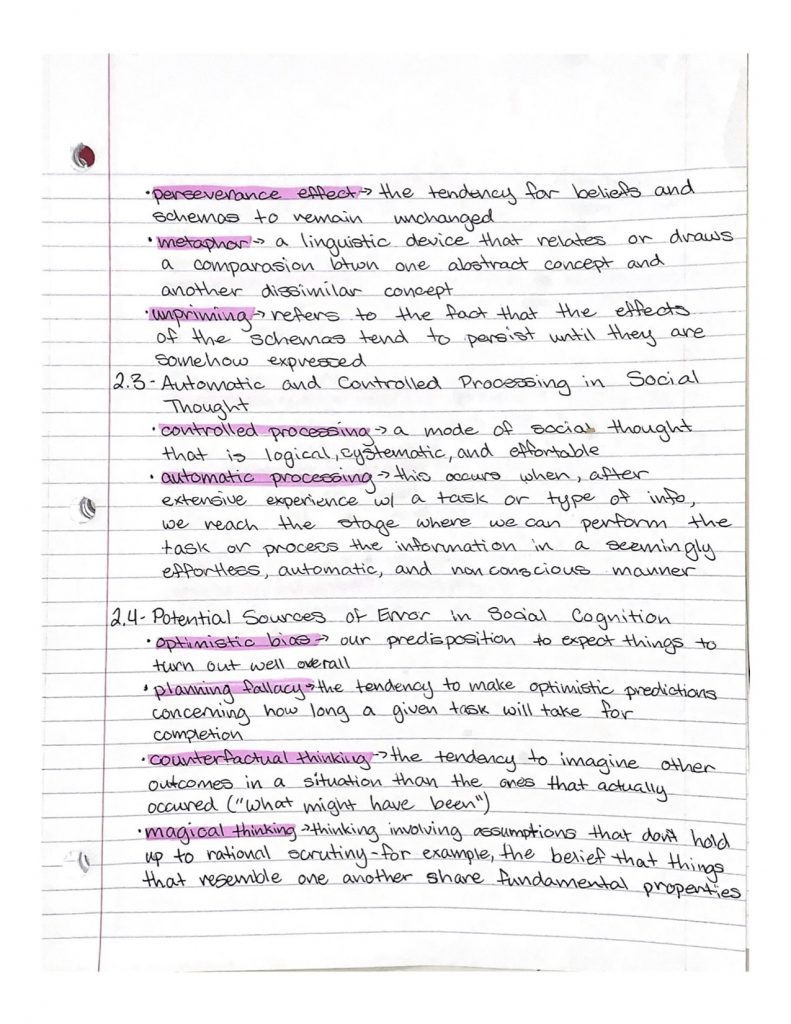 ·perseverance effect→ the tendency for beliefs and
schemas to remain unchanged
·metaphor→ a linguistic device that relates or draws
a comparasion btwn one abstract concept and
another dissimilar concept
·unpriming→ refers to the fact that the effects
of the schemas tend to persist until they are
somehow expressed
2.3- Automatic and Controlled Processing in Social
Thought
·controlled processing→ a mode of social thought
that is logical, systematic, and effortable
·automatic processing→ this occurs when, after
extensive experience w/ a task or type of info,
we reach the stage where we can perform the
task or process the information in a seemingly
effortless, automatic, and nonconscious manner
2.4- Potential Sources of Error in Social Cognition
·optimistic bias→ our predisposition to expect things to
turn out well overall
·planning fallacy→ the tendency to make optimistic predictions
concerning how long a given task will take for
completion
·counterfactual thinking→ the tendency to imagine other
outcomes in a situation than the ones that actually
occured ("what might have been")
·magical thinking→ thinking involving assumptions that don't hold
up to rational scrutiny-for example, the belief that things
that resemble one another share fundamental properties